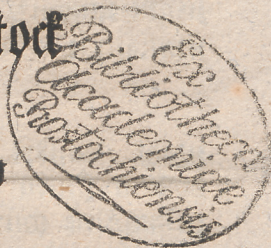 tock
Ex
Bibliotheca
Academiae
Rostochiensis